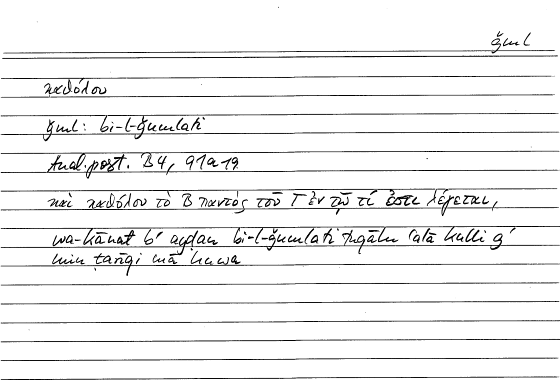 ǧml
καθόλου
ǧml: bi-l-ǧumlati
Anal. post. B 4, 91a19
καὶ καθόλου τὸ Β παντὸς τοῦ Γ ἐν τῷ τί ἐστι λέγεται,
wa-kānat b' ayḍan bi-l-ǧumlati tuqālu ʿalā kulli ǧ'
min ṭarīqi mā huwa